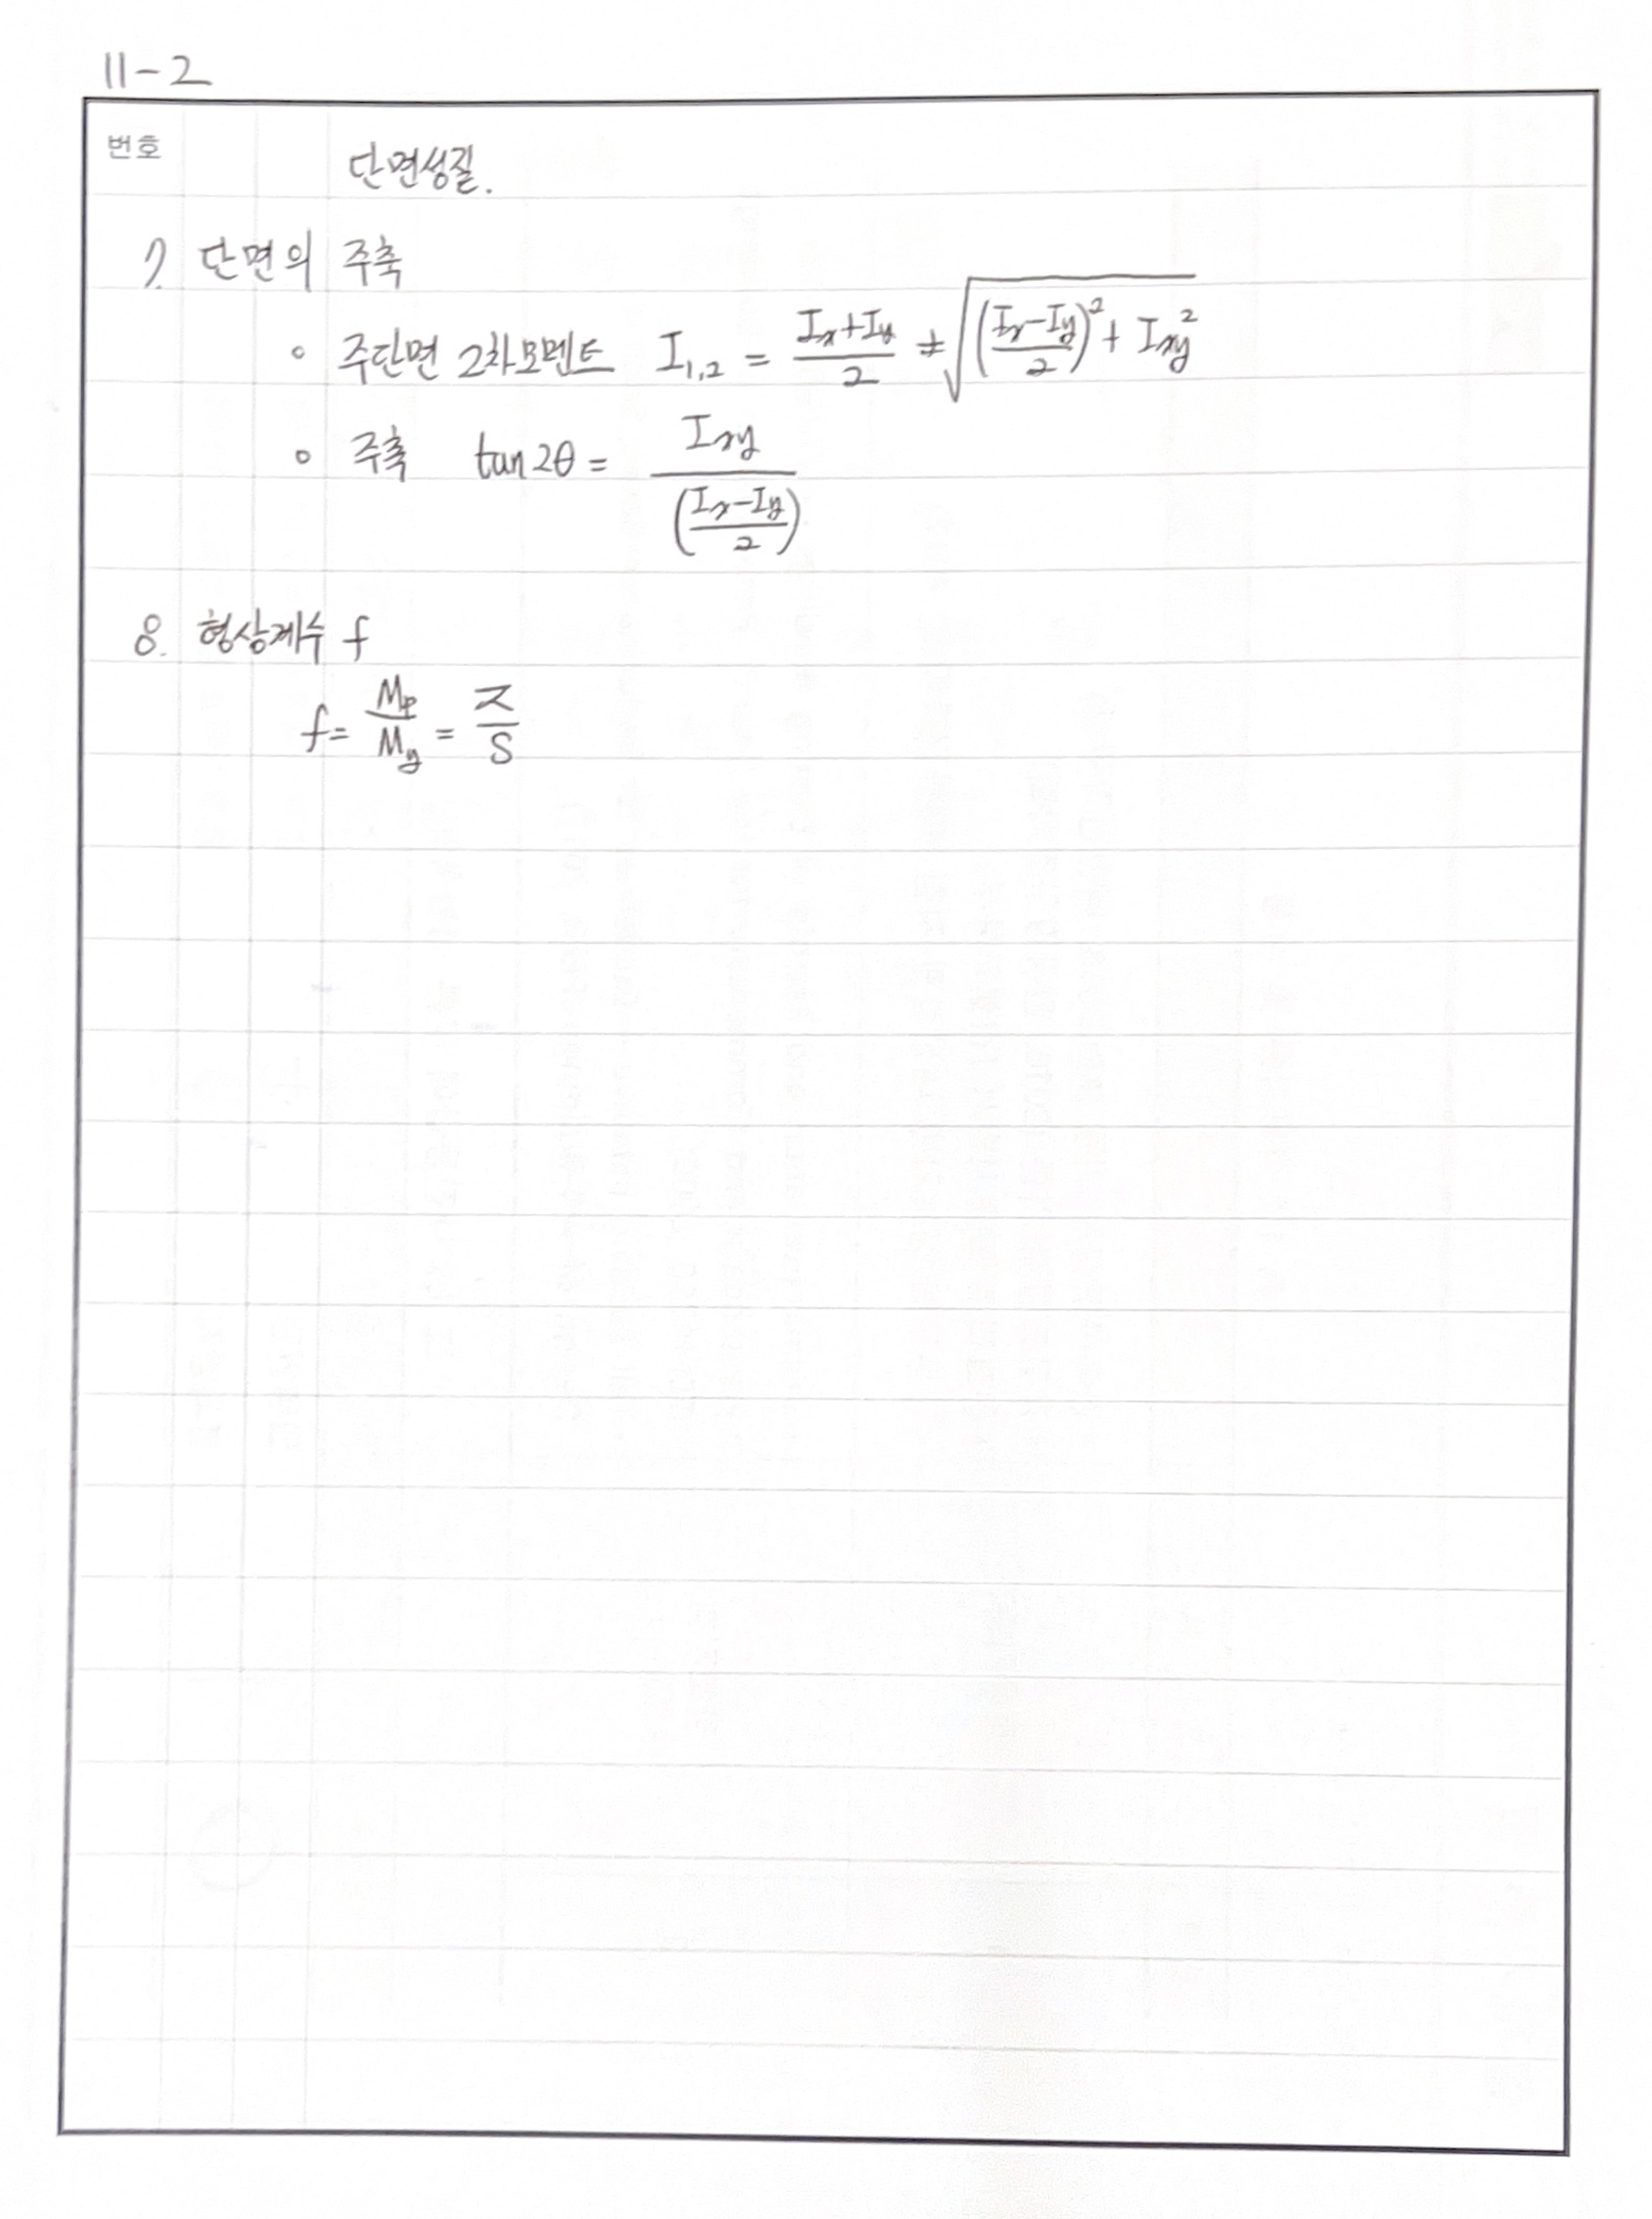 11-2
번호
단면성질.
7. 단면의 주축
◦ 주단면 2차모멘트 I₁,₂ = (Ix+Iy)/2 ± √(((Ix-Iy)/2)² + Ixy²)
◦ 주축 tan2θ = Ixy/((Ix-Iy)/2)
8. 형상계수 f
f = Mp/My = Z/S